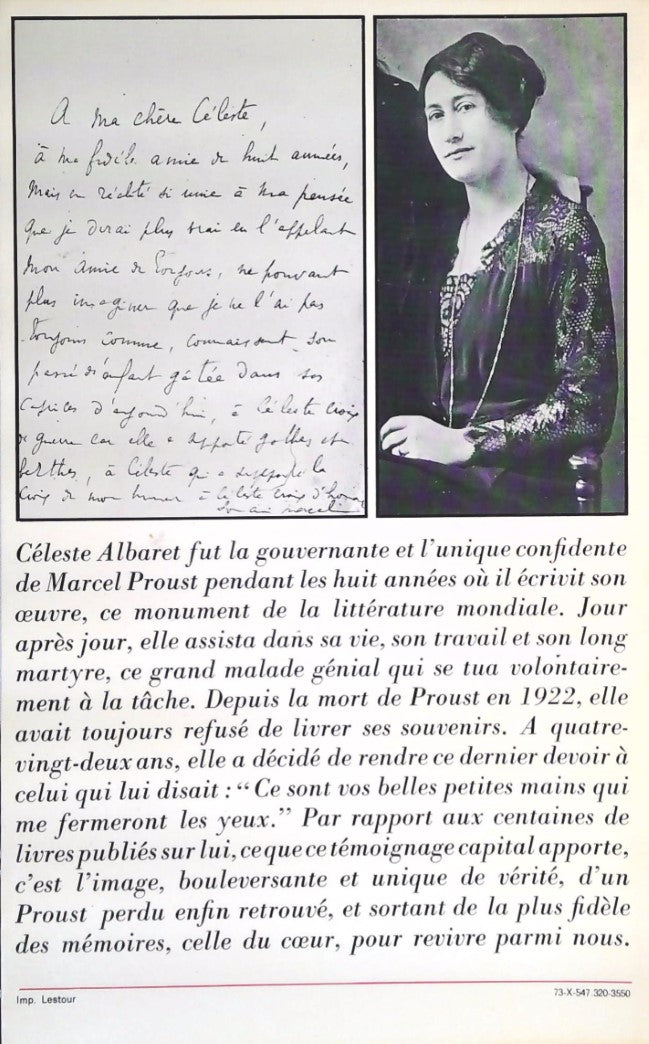 A ma chère Céleste,
à ma fidèle amie de huit années,
mais en réalité si unie à ma pensée
que je dirai plus vrai en l'appelant
mon amie de toujours, ne pouvant
plus imaginer que je ne l'ai pas
toujours connue, connaissant son
passé d'enfant gâtée dans ses
caprices d'aujourd'hui, à Céleste croix
de guerre car elle a supporté gothas et
berthas, à Céleste qui a supporté la
croix de mon humeur à Céleste croix d'honneur
Son ami Marcel
Céleste Albaret fut la gouvernante et l'unique confidente
de Marcel Proust pendant les huit années où il écrivit son
œuvre, ce monument de la littérature mondiale. Jour
après jour, elle assista dans sa vie, son travail et son long
martyre, ce grand malade génial qui se tua volontaire-
ment à la tâche. Depuis la mort de Proust en 1922, elle
avait toujours refusé de livrer ses souvenirs. A quatre-
vingt-deux ans, elle a décidé de rendre ce dernier devoir à
celui qui lui disait : “ Ce sont vos belles petites mains qui
me fermeront les yeux.” Par rapport aux centaines de
livres publiés sur lui, ce que ce témoignage capital apporte,
c'est l'image, bouleversante et unique de vérité, d'un
Proust perdu enfin retrouvé, et sortant de la plus fidèle
des mémoires, celle du cœur, pour revivre parmi nous.
Imp. Lestour
73-X-547 320-3550